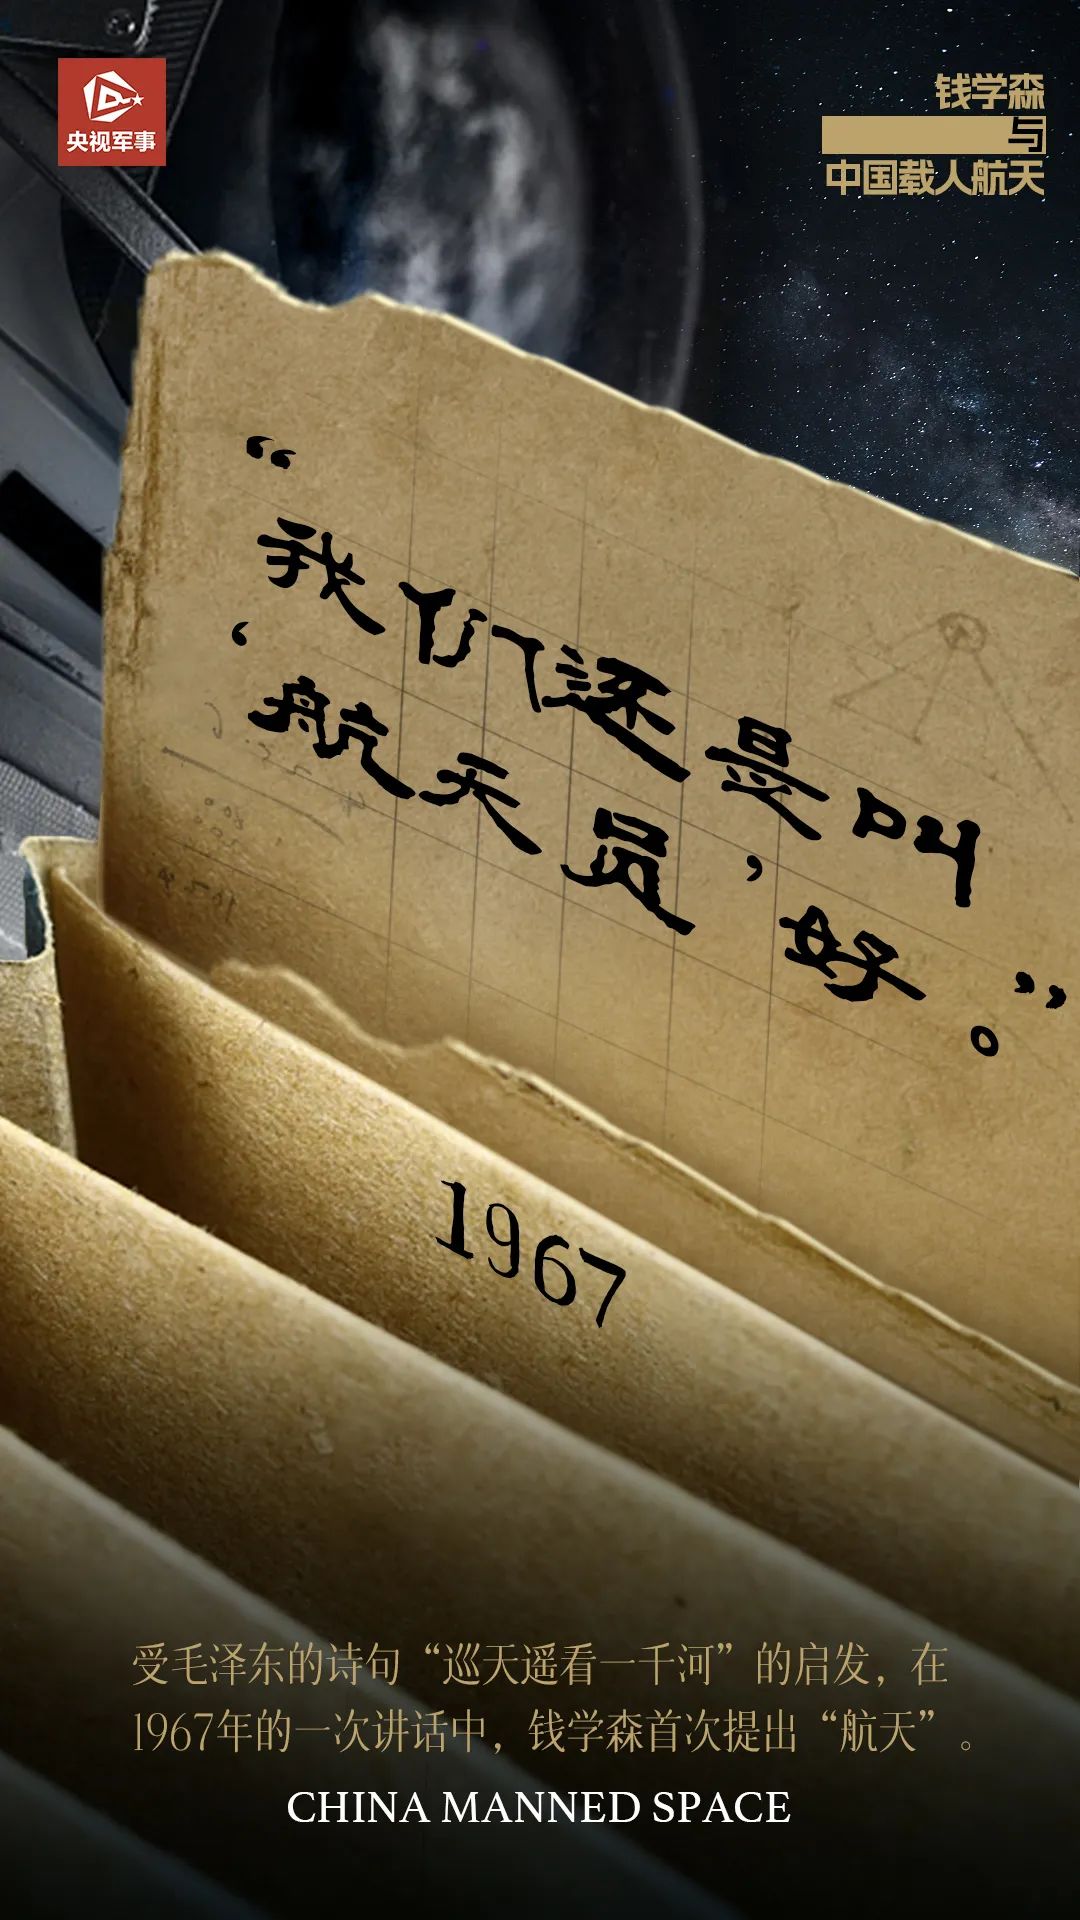 央视军事
钱学森
与
中国载人航天
“
我们还是叫
‘航天员’好。”
1967
受毛泽东的诗句“巡天遥看一千河”的启发，在
1967年的一次讲话中，钱学森首次提出“航天”。
CHINA MANNED SPACE